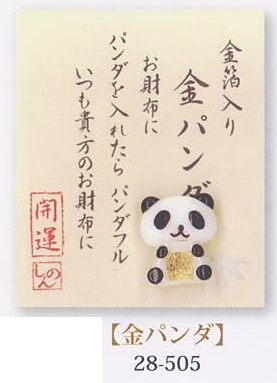 金箔入り
金パンダ
お財布に
パンダを入れたら パンダフル
いつも貴方のお財布に
開運
しんの
【金パンダ】
28-505